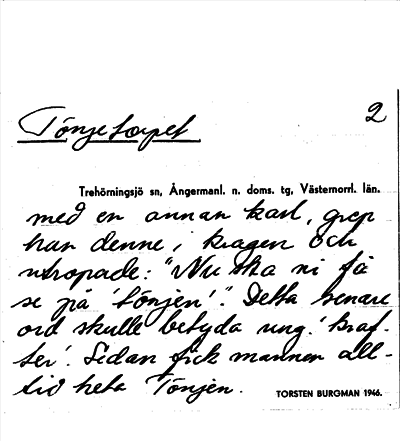 Tönjetorpet
2
Trehörningsjö sn, Ångermanl. n. doms. tg, Västernorrl. län.
med en annan karl, grep
han denne i kragen och
utropade: "Nu ska ni få
se på 'tönjen'". Detta senare
ord skulle betyda ung. 'kraf-
ter'. Sedan fick mannen all-
tid heta Tönjen.
TORSTEN BURGMAN 1946.